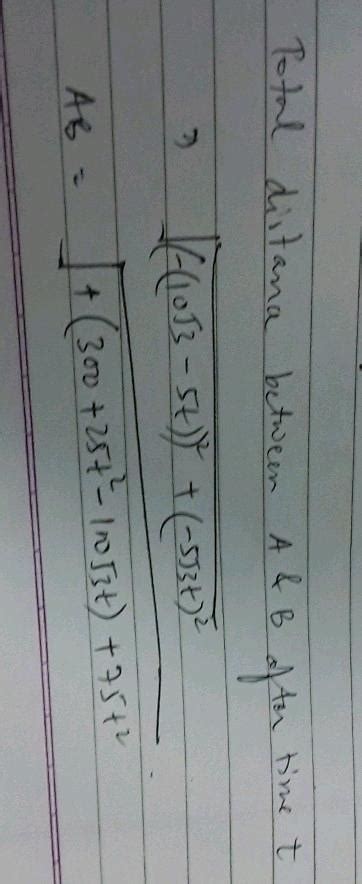 Total distana between A & B after time t
⇒ √((-(10√3 - 5t))² + (-5√3t)²
AB = √(+(300 + 25t² - 100√3t) + 75t²